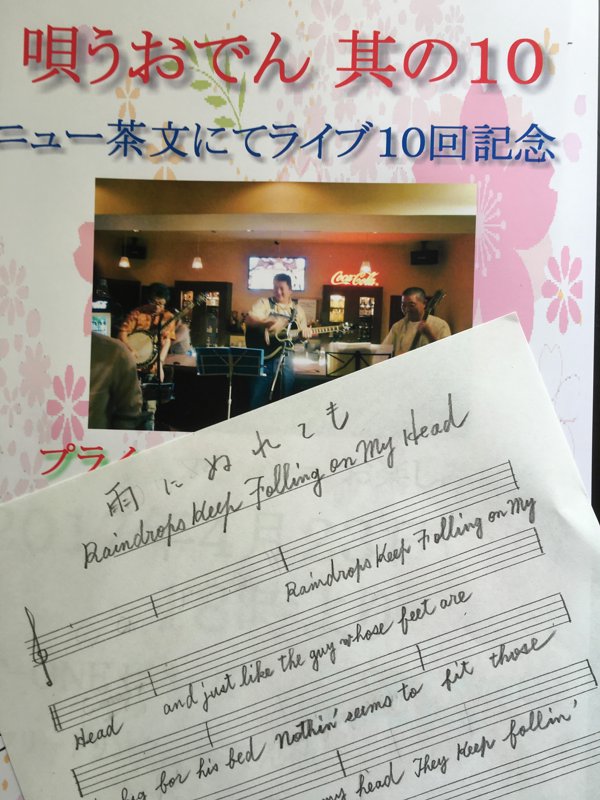 唄うおでん 其の10
ニュー茶文にてライブ10回記念
Coca-Cola
プライ
雨にぬれても
Raindrops Keep Folling on My Head
Raindrops Keep Folling on My
Head and just like the guy whose feet are
big for his bed Nothin' seems to fit those
my head They Keep follin'